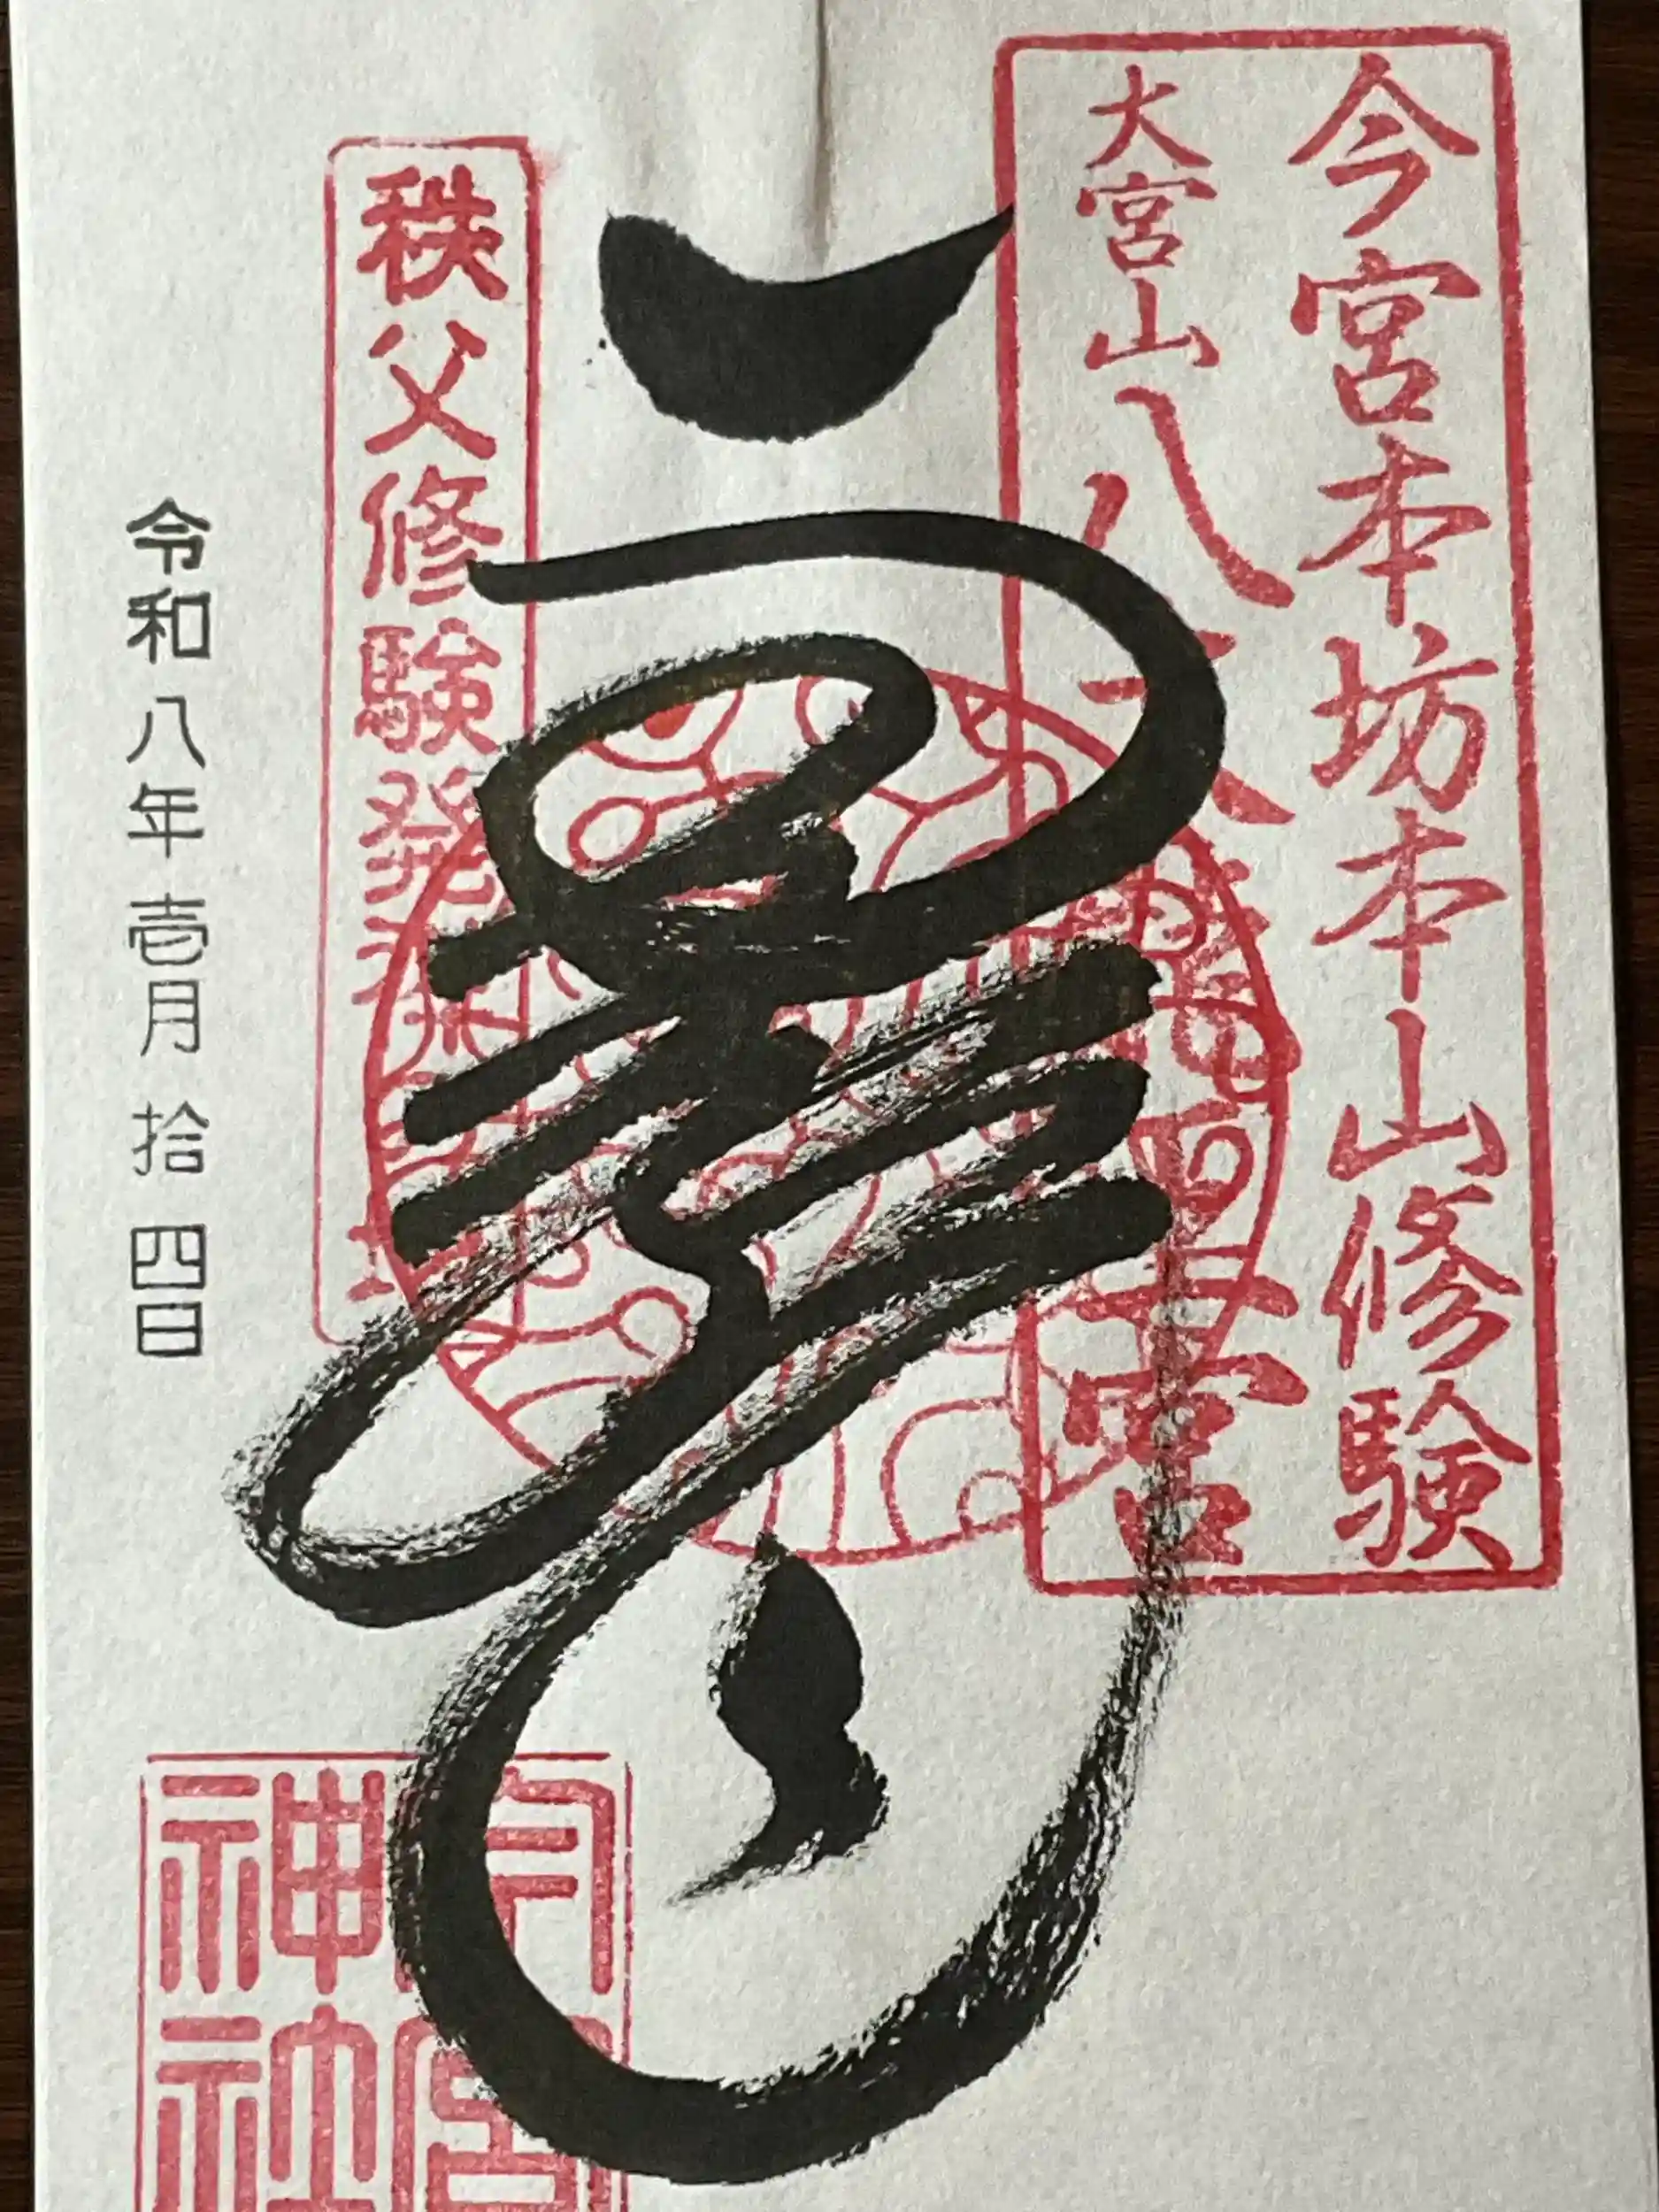 今宮本坊本山修験
大宮山八大龍王宮
秩父修験発祥
令和八年壱月拾四日
今宮
神社